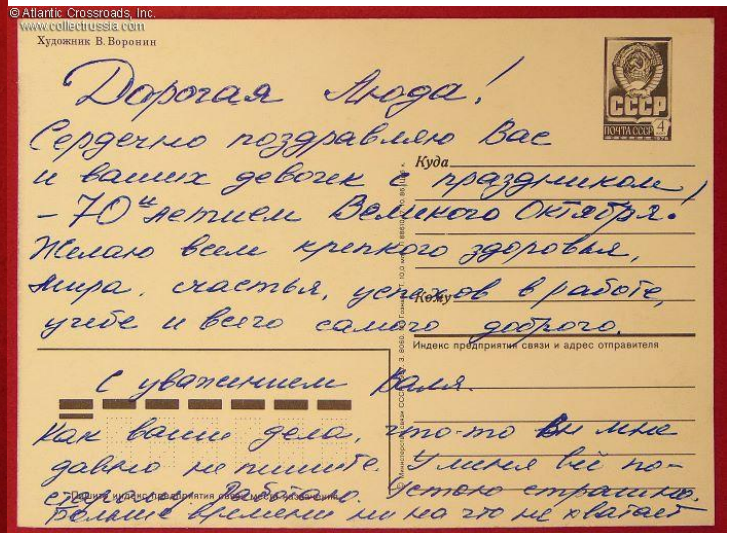 © Atlantic Crossroads, Inc.
www.collectrussia.com
Художник В. Воронин
СССР
ПОЧТА СССР 4
Дорогая Люда!
Сердечно поздравляю Вас
и ваших девочек с праздником,
- 70и летием Великого Октября!
Желаю всем крепкого здоровья,
мира, счастья, успехов в работе,
учебе и всего самого доброго.
С уважением Валя.
Как ваши дела, что-то Вы мне
давно не пишите. У меня всё по-
старому. Работаю. Устаю страшно.
Больше времени ни на что не хватает
Куда
Кому
Индекс предприятия связи и адрес отправителя
Пишите индекс предприятия связи места назначения
© Министерство связи СССР